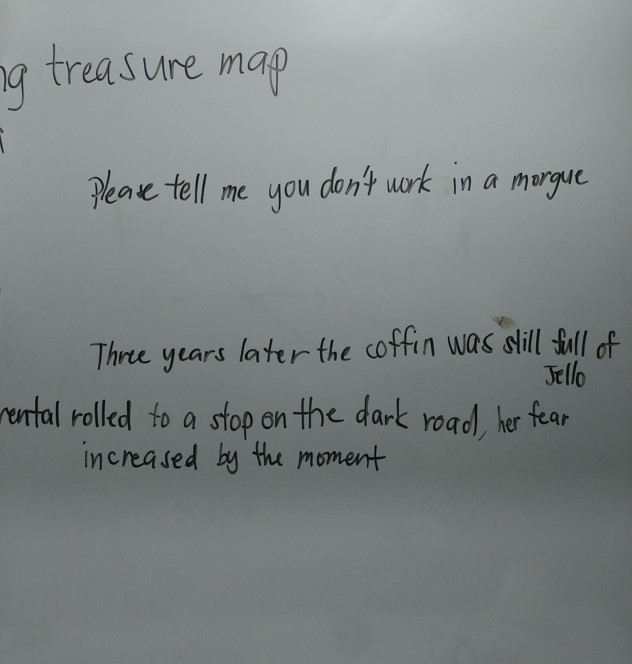 ng treasure map
Please tell me you don't work in a morgue
Three years later the coffin was still full of
Jello
rental rolled to a stop on the dark road, her fear
increased by the moment